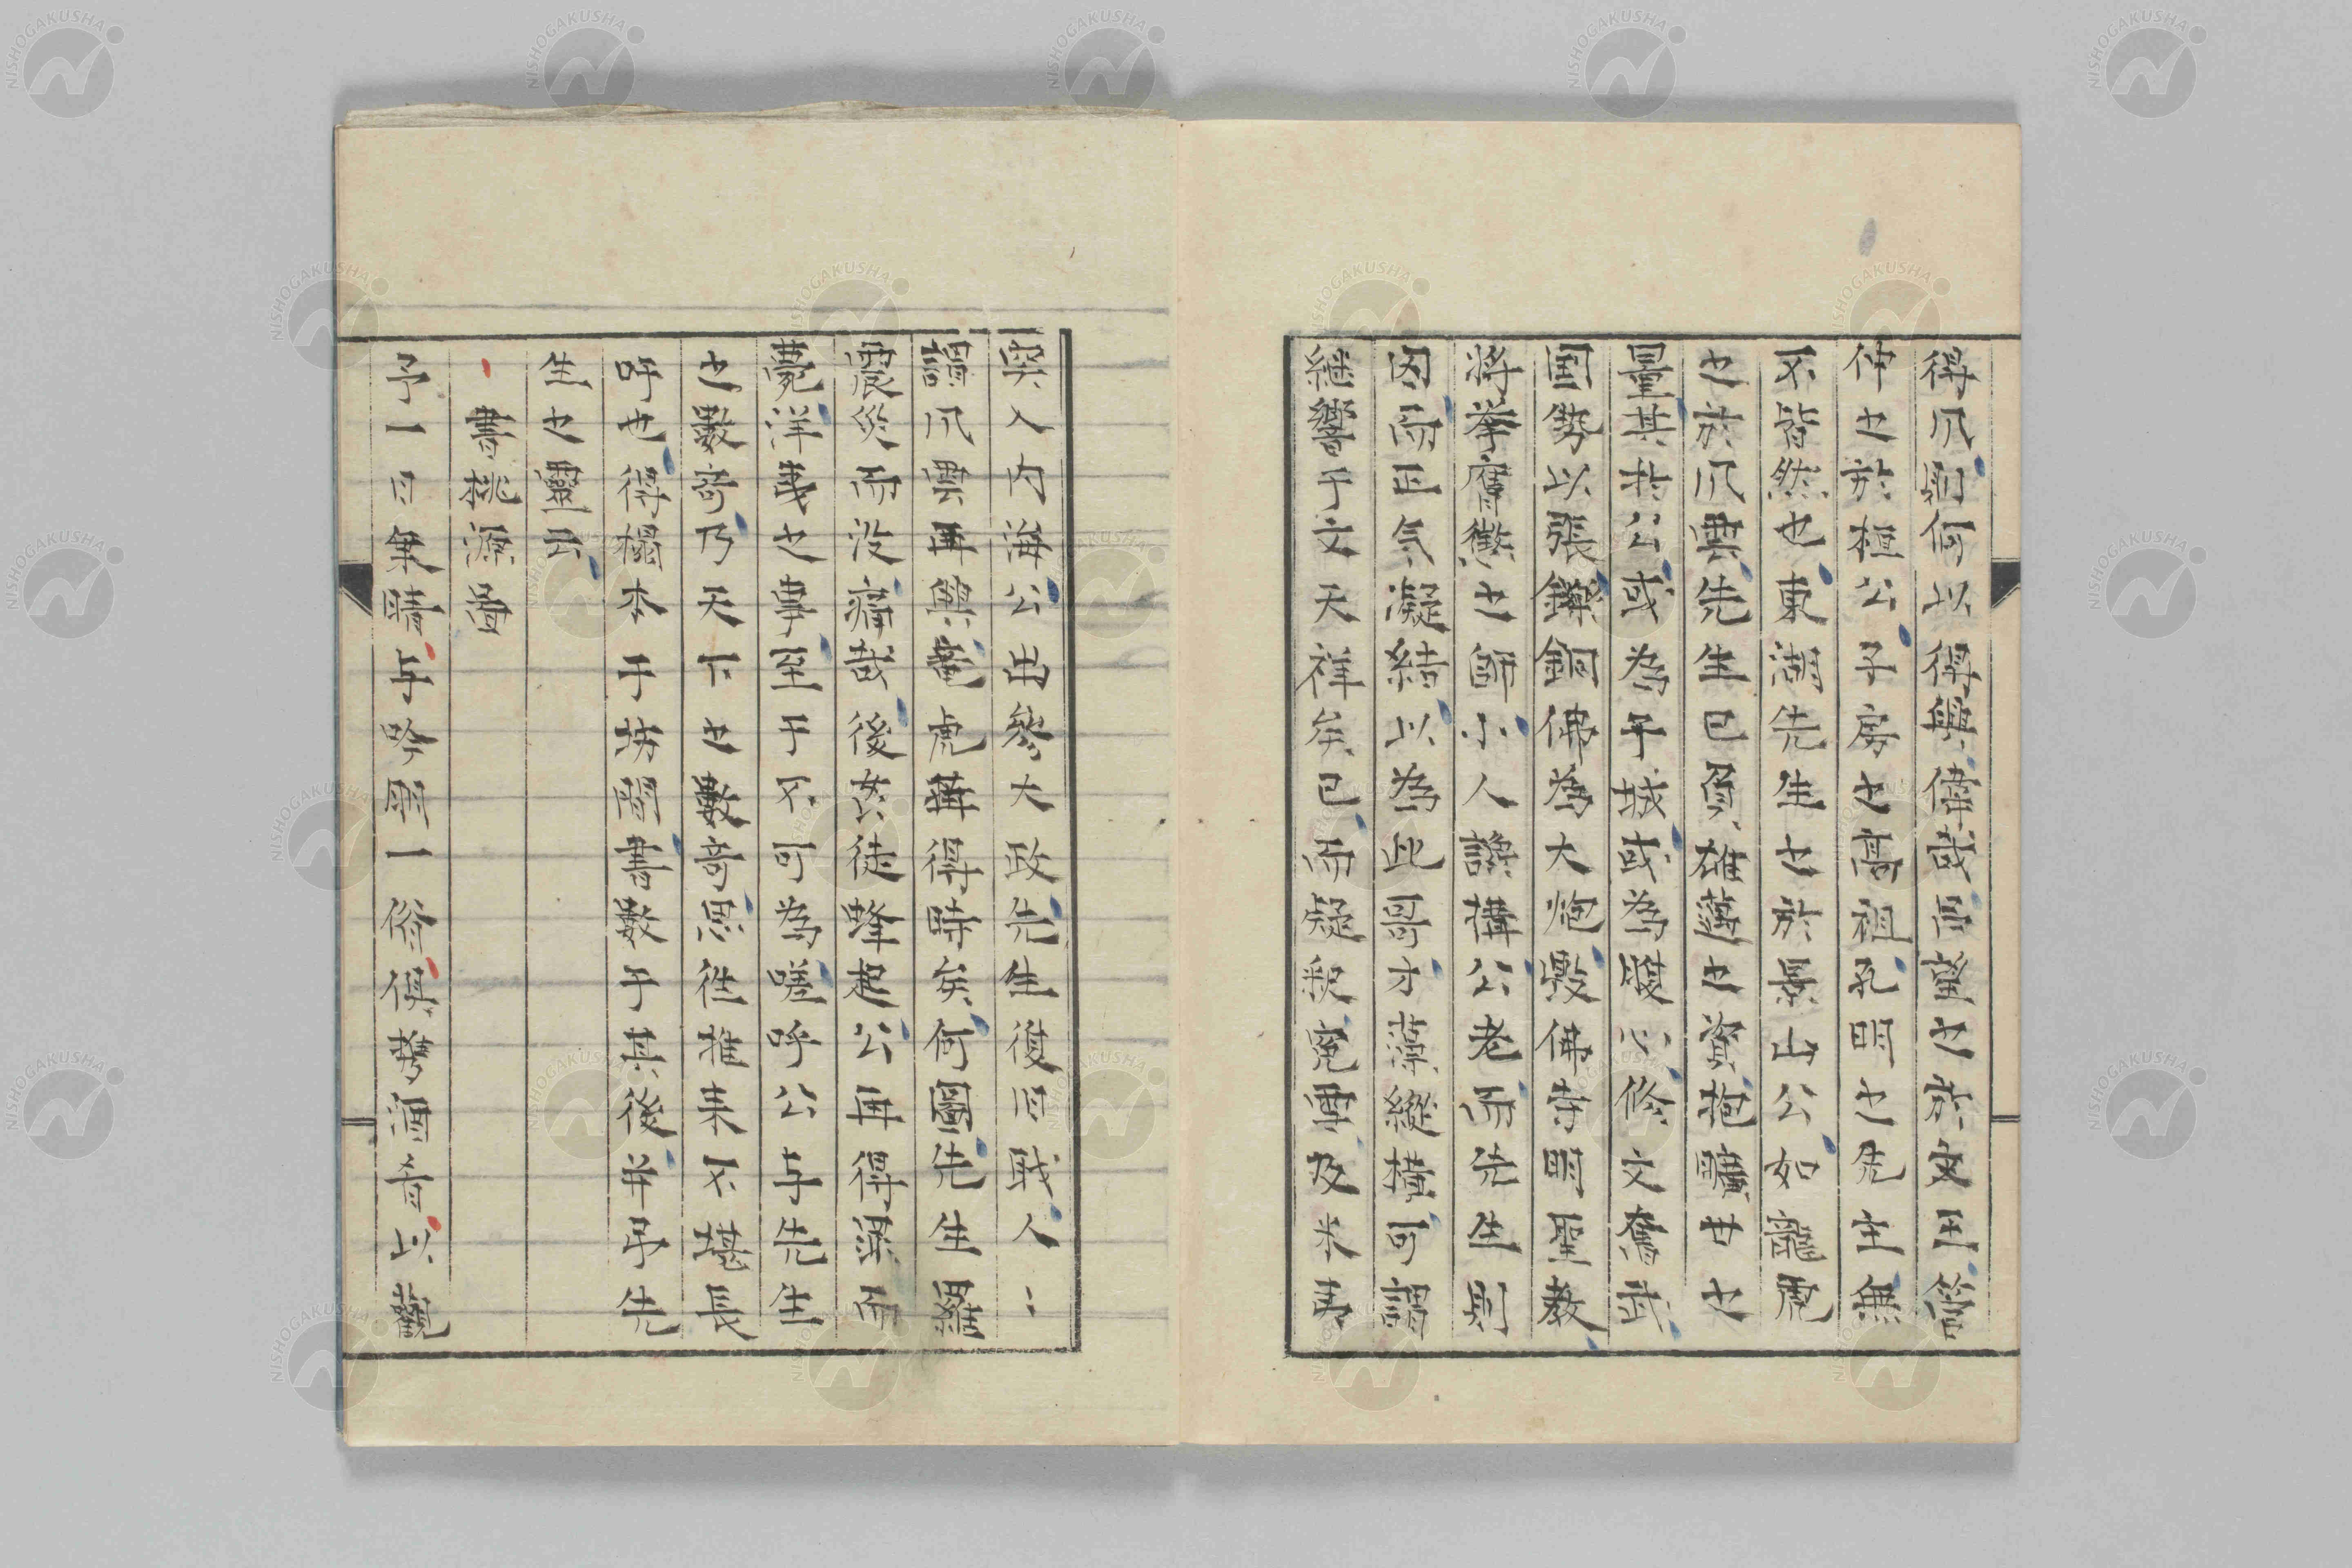 得爪則何以得興偉哉呂望之於文王管
仲之於桓公子房之高祖孔明之先主無
不皆然也東湖先生之於景山公如龍虎
之於爪雲先生已負雄藻之資抱曠世之
量其於公或為干城或為腹心修文奮武
国勢以張鑠銅佛為大炮毀佛寺明聖教
将挙膺懲之師小人讒構公老而先生則
囚而正气凝結以為此哥才藻縦横可謂
継響于文天祥矣已而疑釈寃雪及米夷
突入内海公出参大政先生復日戝人人
謂爪雲再興竜虎搆得時矣何圖先生羅
震災而没痛哉後姦徒蜂起公再得罪而
薨洋夷之事至于不可為嗟呼公与先生
之數奇乃天下之數奇思往推来不堪長
呼也得榻本于坊間書數于其後并弔先
生之靈云
書桃源図
予一日無晴与吟朋一俗倶携酒肴以觀
NISHOGAKUSHA